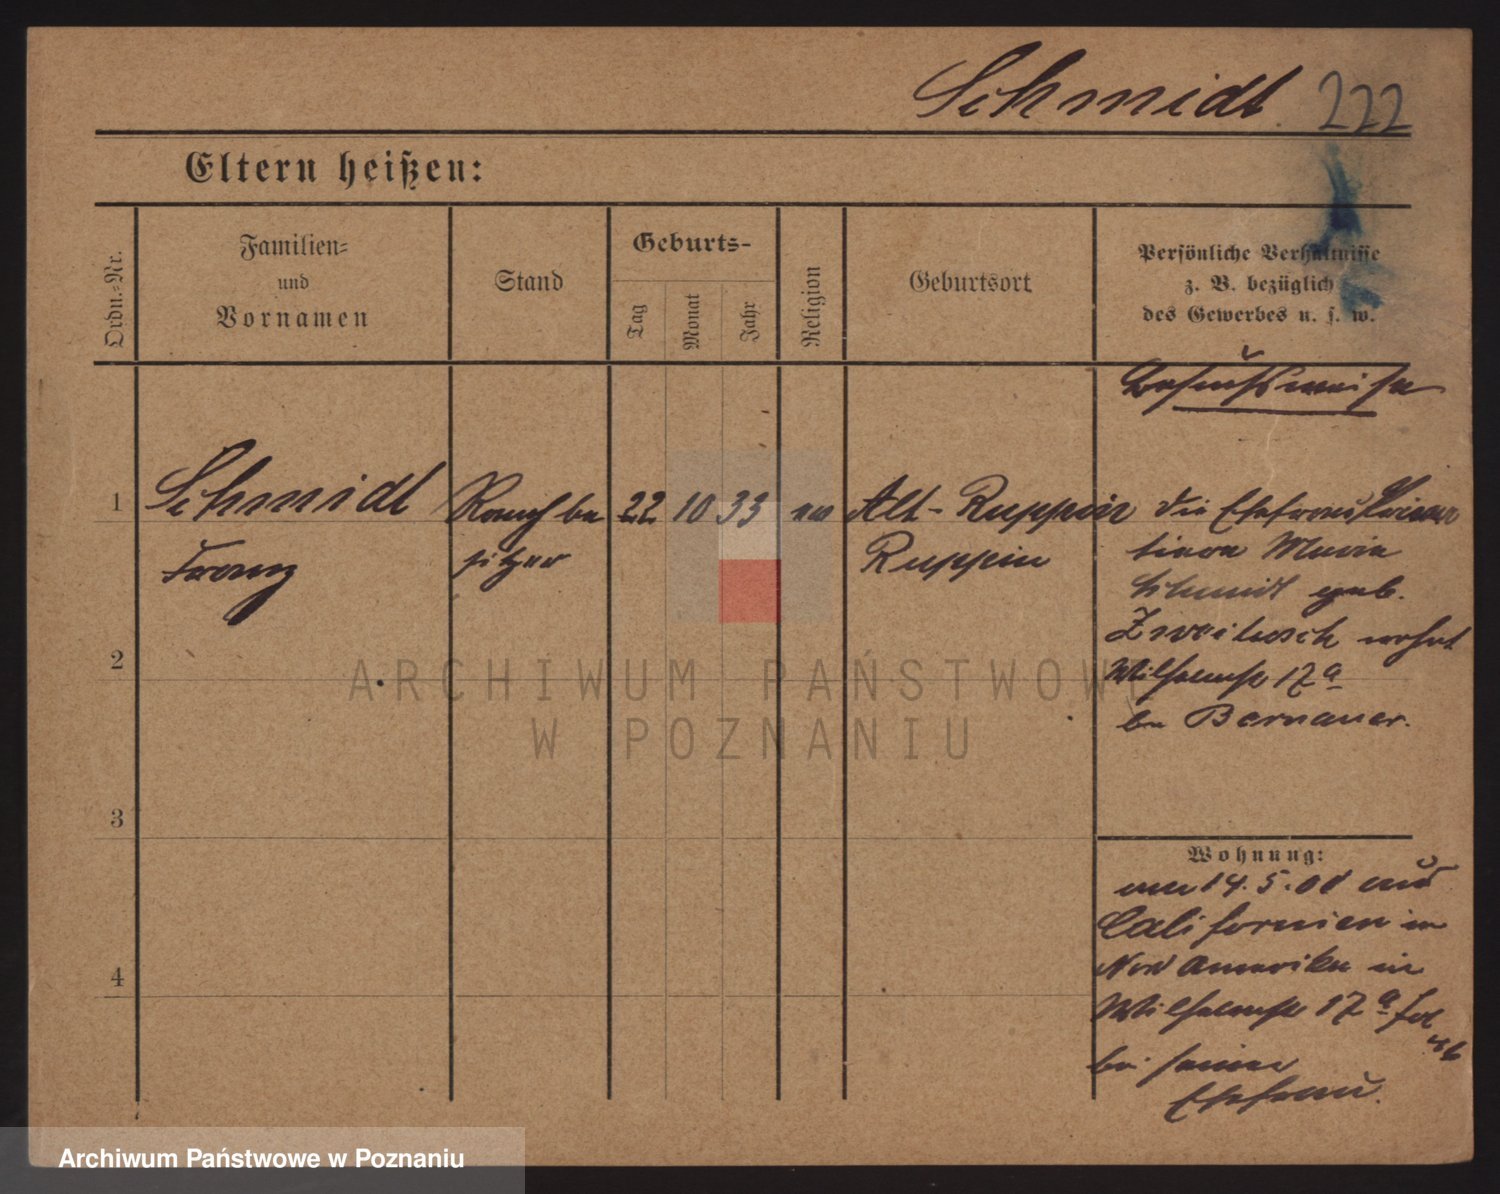 Schmidt. 222
Eltern heißen:
Ordn.-Nr.
Familien-
und
Vornamen
Stand
Geburts-
Tag
Monat
Jahr
Religion
Geburtsort
Persönliche Verhältnisse
z. B. bezüglich
des Gewerbes u. s. w.
besuchsweise
1
Schmidt
Franz
Ranchbe
sitzer
22 10 33
ev
Alt-Ruppin
Ruppin
die Ehefrau
Marie
Schmidt geb.
wohnt
Wilhelmstr 17a
bei Bernauer.
2
3
4
Wohnung:
am 14.5.01 aus
Californien in
Nord Amerika in
Wilhelmstr 17a
bei seiner
Ehefrau.
ARCHIWUM PAŃSTWOWE
W POZNANIU
Archiwum Państwowe w Poznaniu